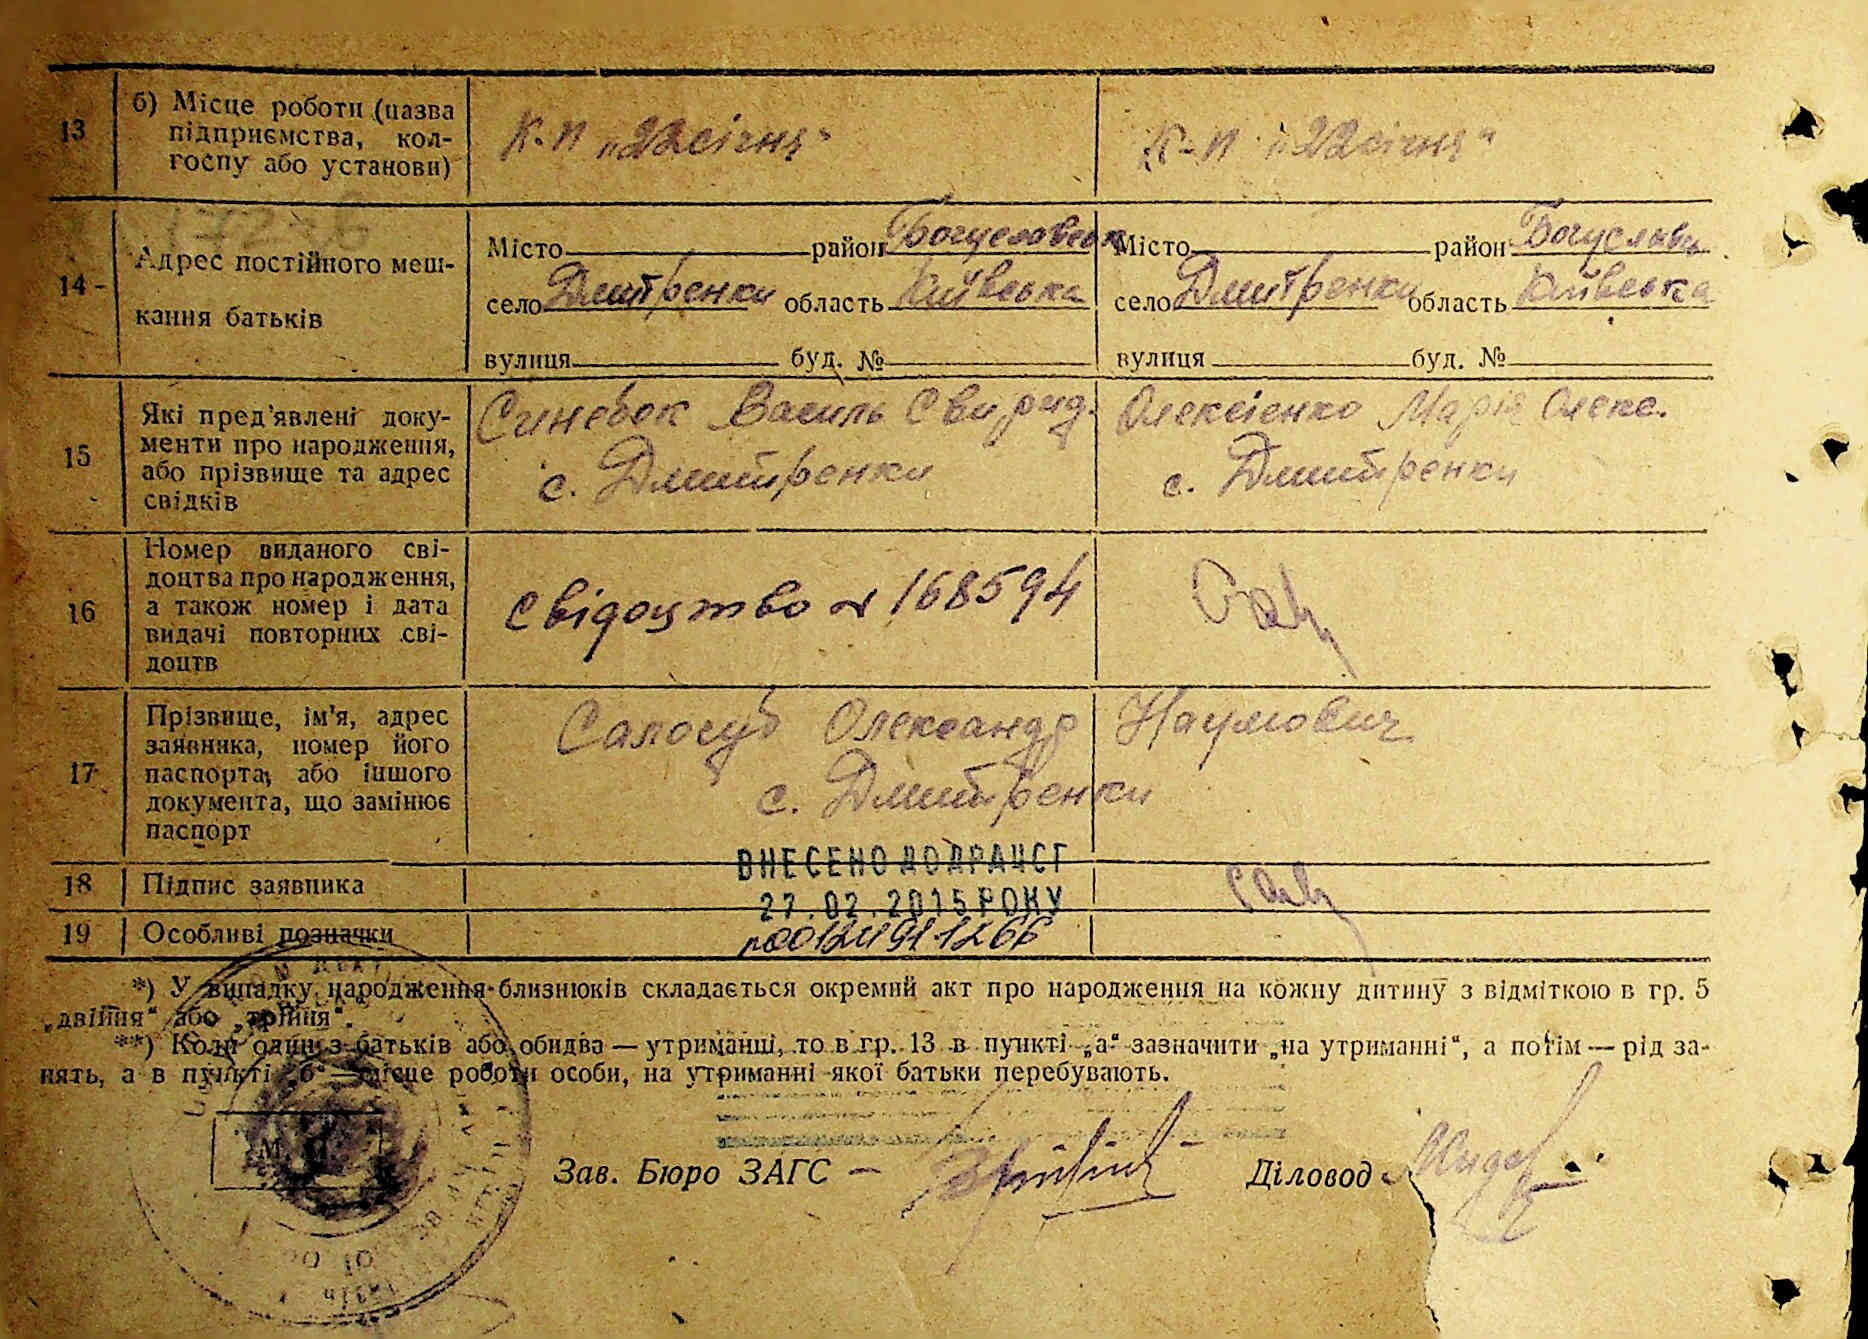 13 б) Місце роботи (назва підприємства, колгоспу або установи) К-п „22 січня“ К-п „22 січня“
17236
14 - Адрес постійного меш-
кання батьків
Місто район Богуславськ Місто район Богуславськ
село Дмитренки область Київська село Дмитренки область Київська
вулиця буд. № вулиця буд. №
15 Які пред'явлені доку-
менти про народження,
або прізвище та адрес
свідків
Синебок Василь Свирид. Олексієнко Марія Олекс.
с. Дмитренки с. Дмитренки
16 Номер виданого сві-
доцтва про народження,
а також номер і дата
видачі повторних сві-
доцтв
Свідоцтво № 168594
17 Прізвище, ім'я, адрес
заявника, номер його
паспорта, або іншого
документа, що замінює
паспорт
Салогуб Олександр Наумович
с. Дмитренки
ВНЕСЕНО ДО ДРАЦСГ
18 Підпис заявника
27.02.2015 РОКУ
19 Особливі позначки
*) У випадку народження близнюків складається окремий акт про народження на кожну дитину з відміткою в гр. 5
„двійня“ або „трійня“.
**) Коли один з батьків або обидва — утриманці, то в гр. 13 в пункті „а“ зазначити „на утриманні“, а потім — рід за-
нять, а в пункті „б“ — місце роботи особи, на утриманні якої батьки перебувають.
М. П.
Зав. Бюро ЗАГС — Діловод